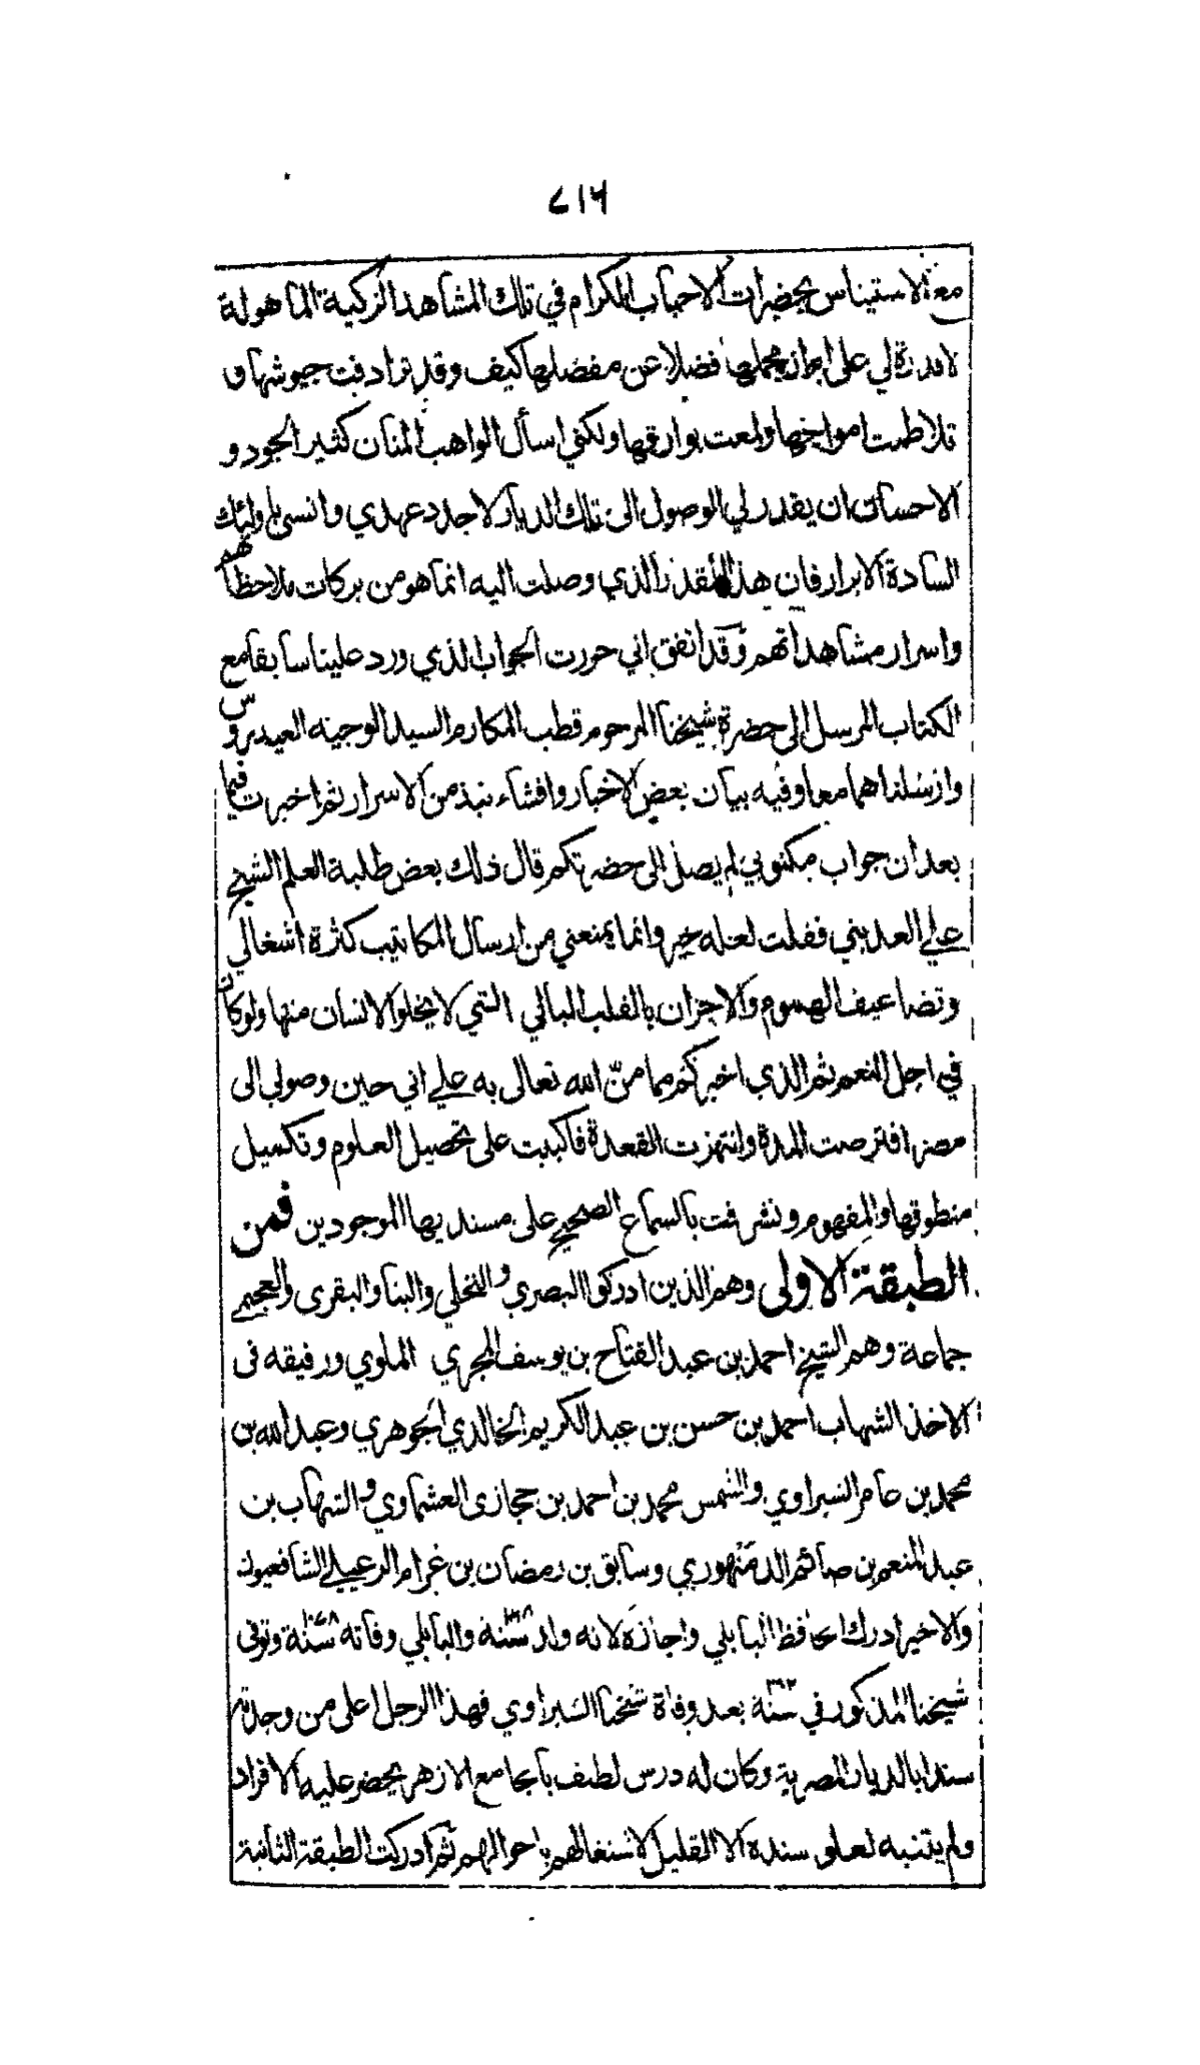 ٢١٦
مع الاستيناس بحضرات الاحباب الكرام في تلك المشاهد الزكية الماهولة
لا قدرة لي على ابراز مجملها فضلا عن مفصلها كيف وقد ترادفت جيوشها و
تلاطمت امواجها ولمعت بوارقها ولكني اسأل الواهب المنان كثير الجود و
الاحسان ان يقدر لي الوصول الى تلك الديار لاجدد عهدي وانسي باولئك
السادة الابرار فان هذا القدر الذي وصلت اليه انما هو من بركات ملاحظاتهم
واسرار مشاهداتهم وقد اتفق اني حررت الجواب الذي ورد علينا سابقا مع
الكتاب المرسل الى حضرة شيخنا المرحوم قطب المكارم السيد الوجيه العيدروس
وارسلناهما معا وفيه بيان بعض الاخبار وافشاء نبذ من الاسرار ثم اخبرت فيما
بعد ان جواب مكتوبي لم يصل الى حضرتكم قال ذلك بعض طلبة العلم الشيخ
علي العديني فقلت لعله خير وانما يمنعني من ارسال المكاتيب كثرة اشغالي
وتضاعيف الهموم والاحزان بالقلب البالي التي لا يخلو الانسان منها ولو كان
في اجل النعم ثم الذي اخبركم مما منّ الله تعالى به علي اني حين وصولي الى
مصر افترصت المدة وانتهزت القعدة فاكببت على تحصيل العلوم وتكميل
منطوقها والمفهوم وتشرفت بالسماع الصحيح على مسنديها الموجودين فمن
الطبقة الاولى وهم الذين ادركوا البصري والنخلي والبنا والبقرى والعجيمي
جماعة وهم الشيخ احمد بن عبد الفتاح بن يوسف المجري الملوي ورفيقه فى
الاخذ الشهاب احمد بن حسن بن عبد الكريم الخالدي الجوهري وعبد الله بن
محمد بن عامر الشبراوي والشمس محمد بن احمد بن حجازى العشماوي والشهاب بن
عبد المنعم بن صائم الدمنهوري وسابق بن رمضان بن غرام الزعبلي الشافعيون
والاخير ادرك الحافظ البابلي واجازه لانه ولد سنة ١٠٦٨ والبابلي وفاته سنة ١٠٧٨ وتوفى
شيخنا المذكور في سنة بعد وفاة شيخنا الشبراوي فهذا الرجل اعلى من وجدته
سندا بالديار المصرية وكان له درس لطيف بالجامع الازهر يحضر عليه الافراد
ولم يتنبه لعلو سنده الا القليل لاشتغالهم باحوالهم ثم ادركت الطبقة الثانية